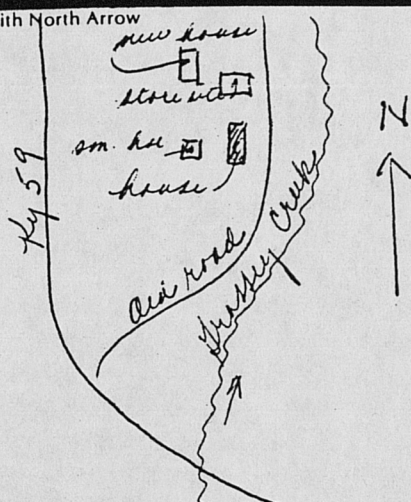 ith North Arrow
new house
store
sm. hse
house
Ky 59
N
Old road
Grassy Creek